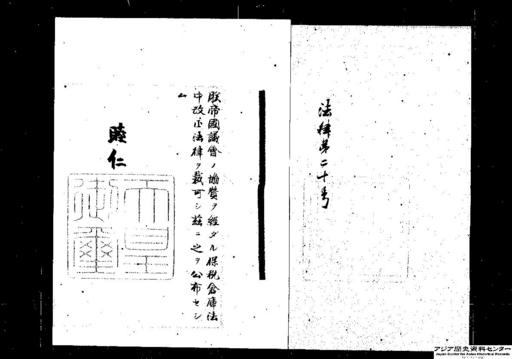 法律第二十号
朕帝國議會ノ協賛ヲ經タル保税倉庫法
中改正法律ヲ裁可シ茲ニ之ヲ公布セシ
ム
睦仁
天皇
御璽
アジア歴史資料センター
Japan Center for Asian Historical Records